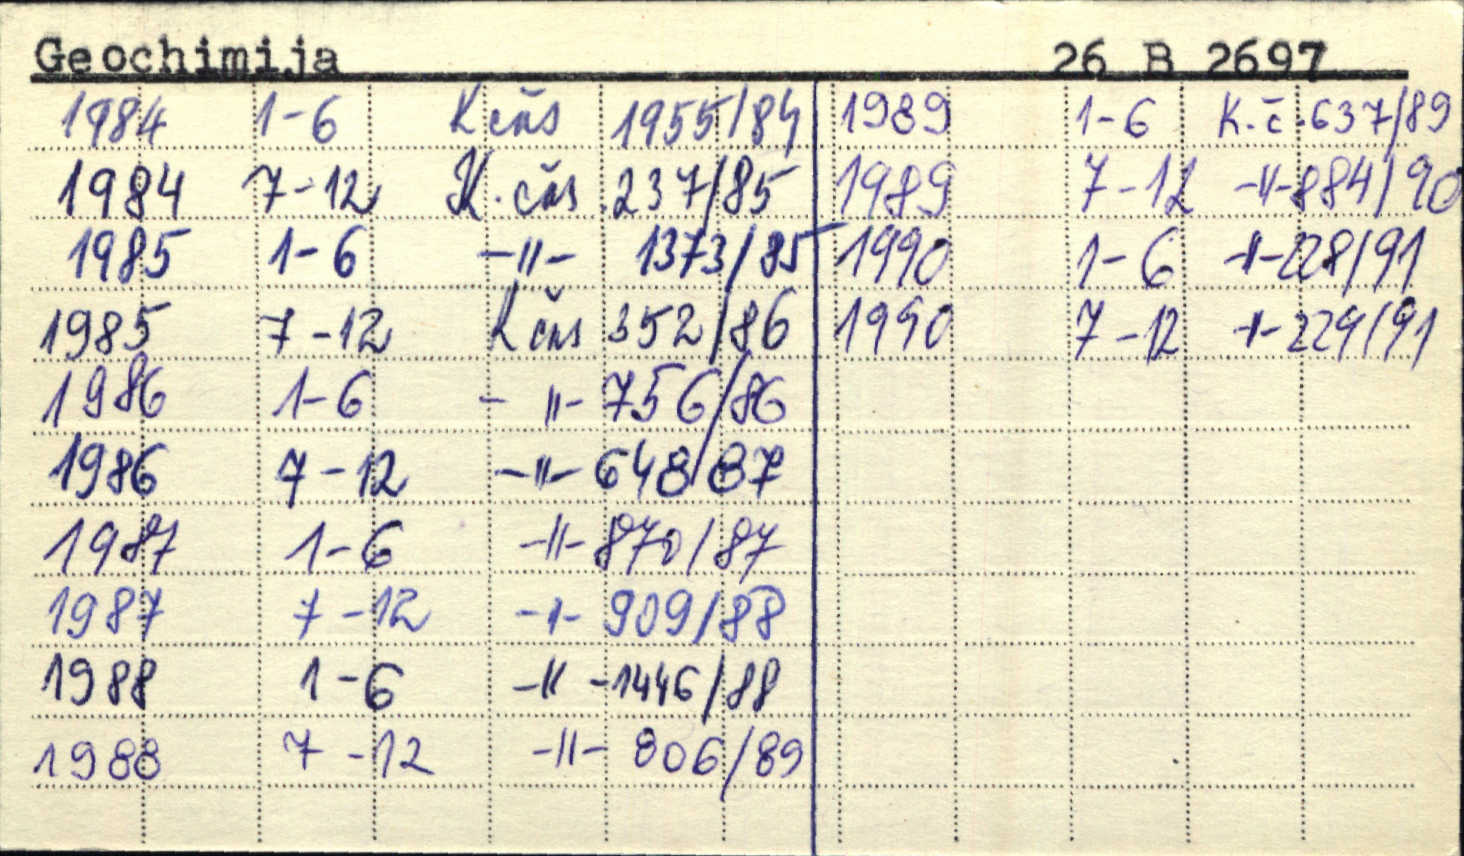 Geochimija 26 B 2697
1984 1-6 Kčas 1955/84
1984 7-12 K. čas 237/85
1985 1-6 -"- 1373/85
1985 7-12 Kčas 352/86
1986 1-6 -"- 756/86
1986 7-12 -"- 648/87
1987 1-6 -"- 870/87
1987 7-12 -"- 909/88
1988 1-6 -"- 1446/88
1988 7-12 -"- 806/89
1989 1-6 K.č. 637/89
1989 7-12 -"- 884/90
1990 1-6 -"- 228/91
1990 7-12 -"- 229/91